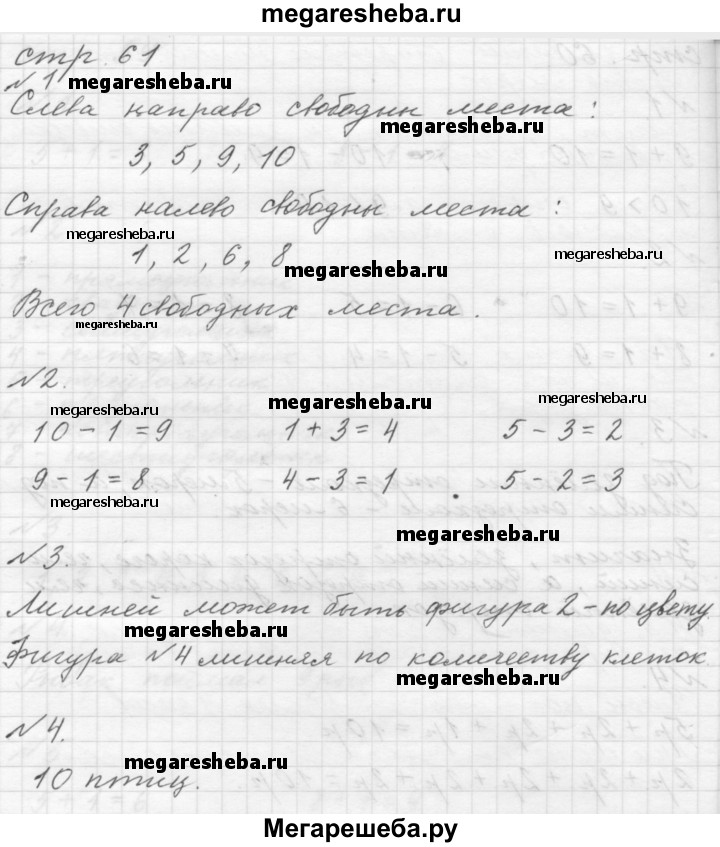 megaresheba.ru
стр. 61
№1 megaresheba.ru
Слева направо свободны места:
megaresheba.ru
3, 5, 9, 10
Справа налево свободны места:
megaresheba.ru
1, 2, 6, 8 megaresheba.ru
Всего 4 свободных места.
megaresheba.ru
№2.
megaresheba.ru megaresheba.ru megaresheba.ru
10 - 1 = 9 1 + 3 = 4 5 - 3 = 2
9 - 1 = 8 4 - 3 = 1 5 - 2 = 3
megaresheba.ru
megaresheba.ru
№3.
Лишней может быть фигура 2 - по цвету.
megaresheba.ru
Фигура №4 лишняя по количеству клеток.
megaresheba.ru
№4.
megaresheba.ru
10 птиц.
Мегарешеба.ру